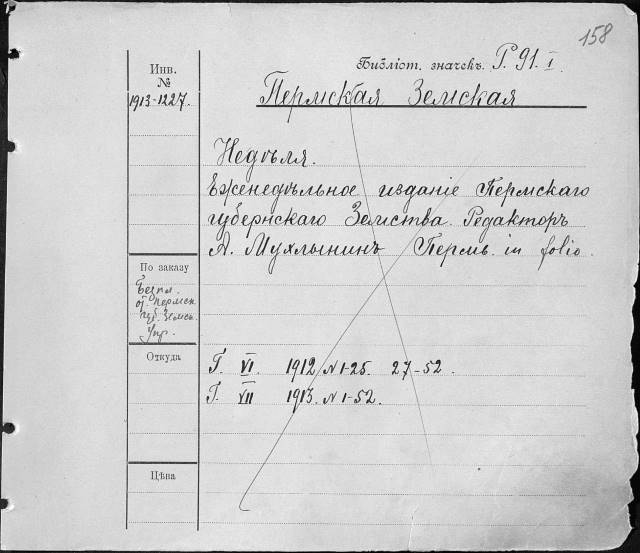 158
Библіот. значекъ. Р. 91. I
Инв.
№
1913-1227.
Пермская Земская
Недѣля.
Еженедѣльное изданіе Пермскаго
губернскаго Земства. Редакторъ
А. Мухлынинъ Пермь. in folio.
По заказу
Безпл.
от. Пермск.
губ. Земск.
Упр.
Откуда
Г. VI. 1912 N 1-25. 27-52.
Г. VII 1913. N 1-52.
Цѣна